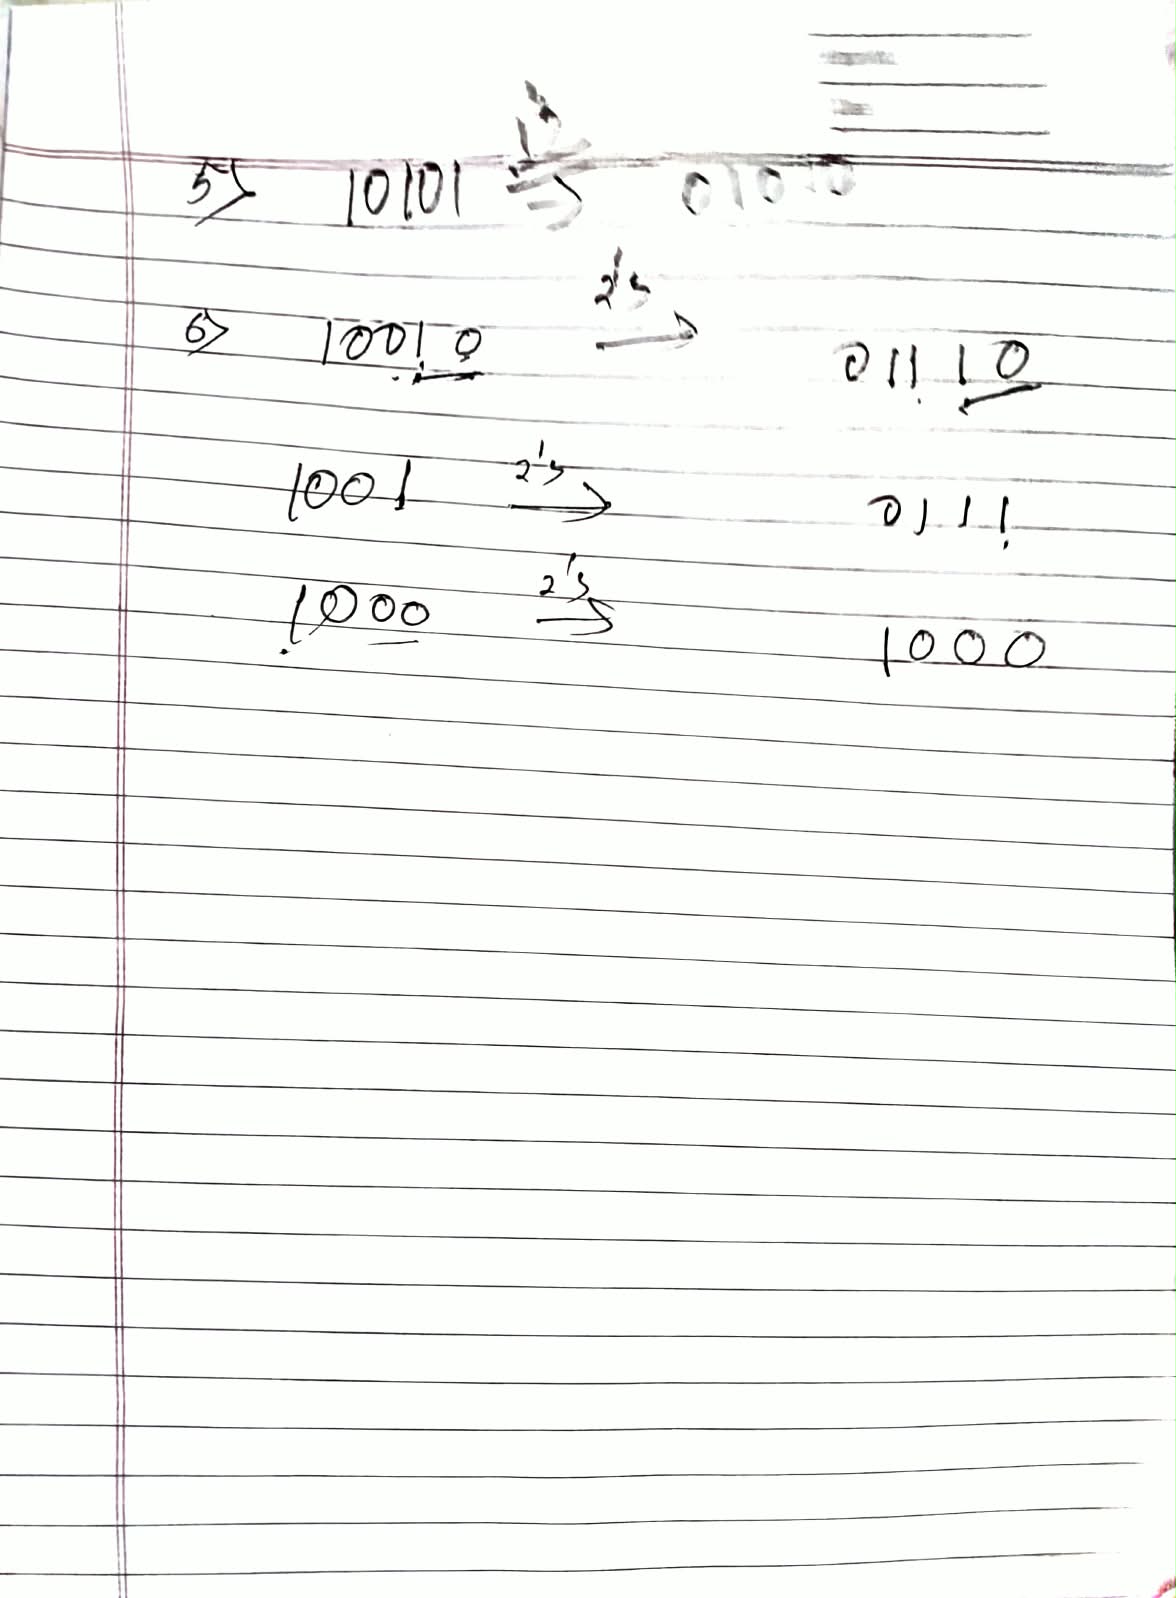 5> 10101 1's → 01010
6> 10010 2's → 01110
1001 2's → 0111
1000 2's → 1000